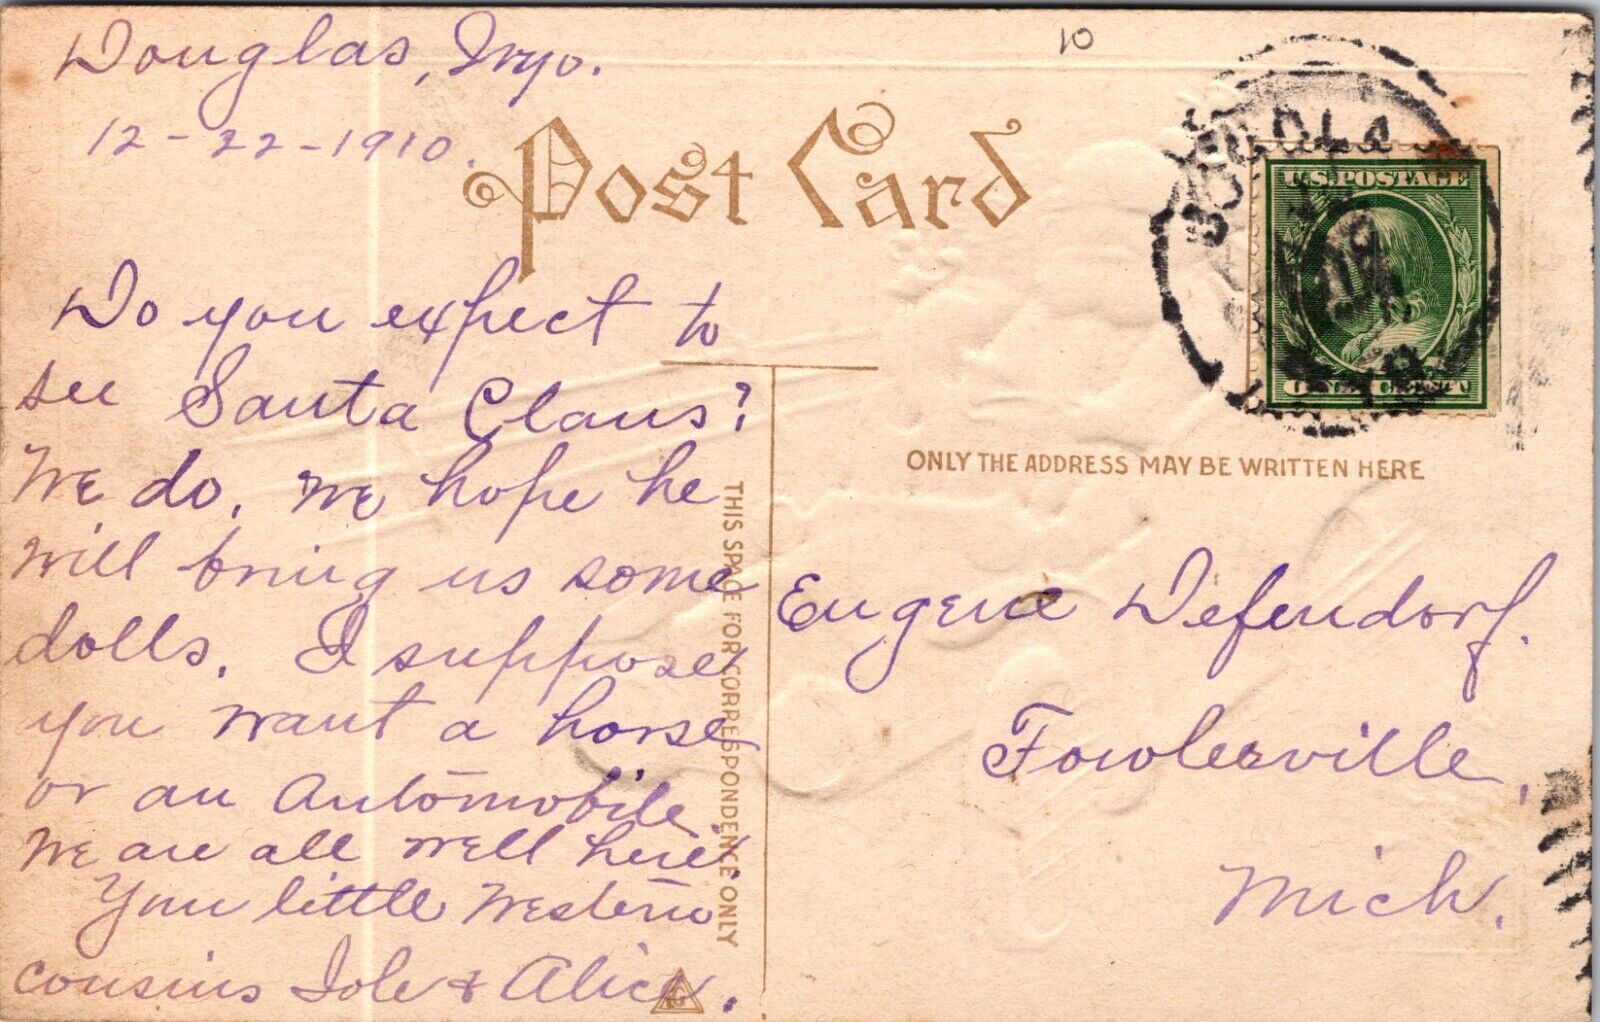 Douglas, Wyo.
12-22-1910.
10
Post Card
U.S. POSTAGE
DOUGLAS
Do you expect to
see Santa Claus?
We do. We hope he
will bring us some
dolls. I suppose
you want a horse
or an Automobile.
We are all well here.
Your little Western
cousins Iole & Alice.
THIS SPACE FOR CORRESPONDENCE ONLY
ONLY THE ADDRESS MAY BE WRITTEN HERE
Eugene Defendorf.
Fowlerville,
Mich.